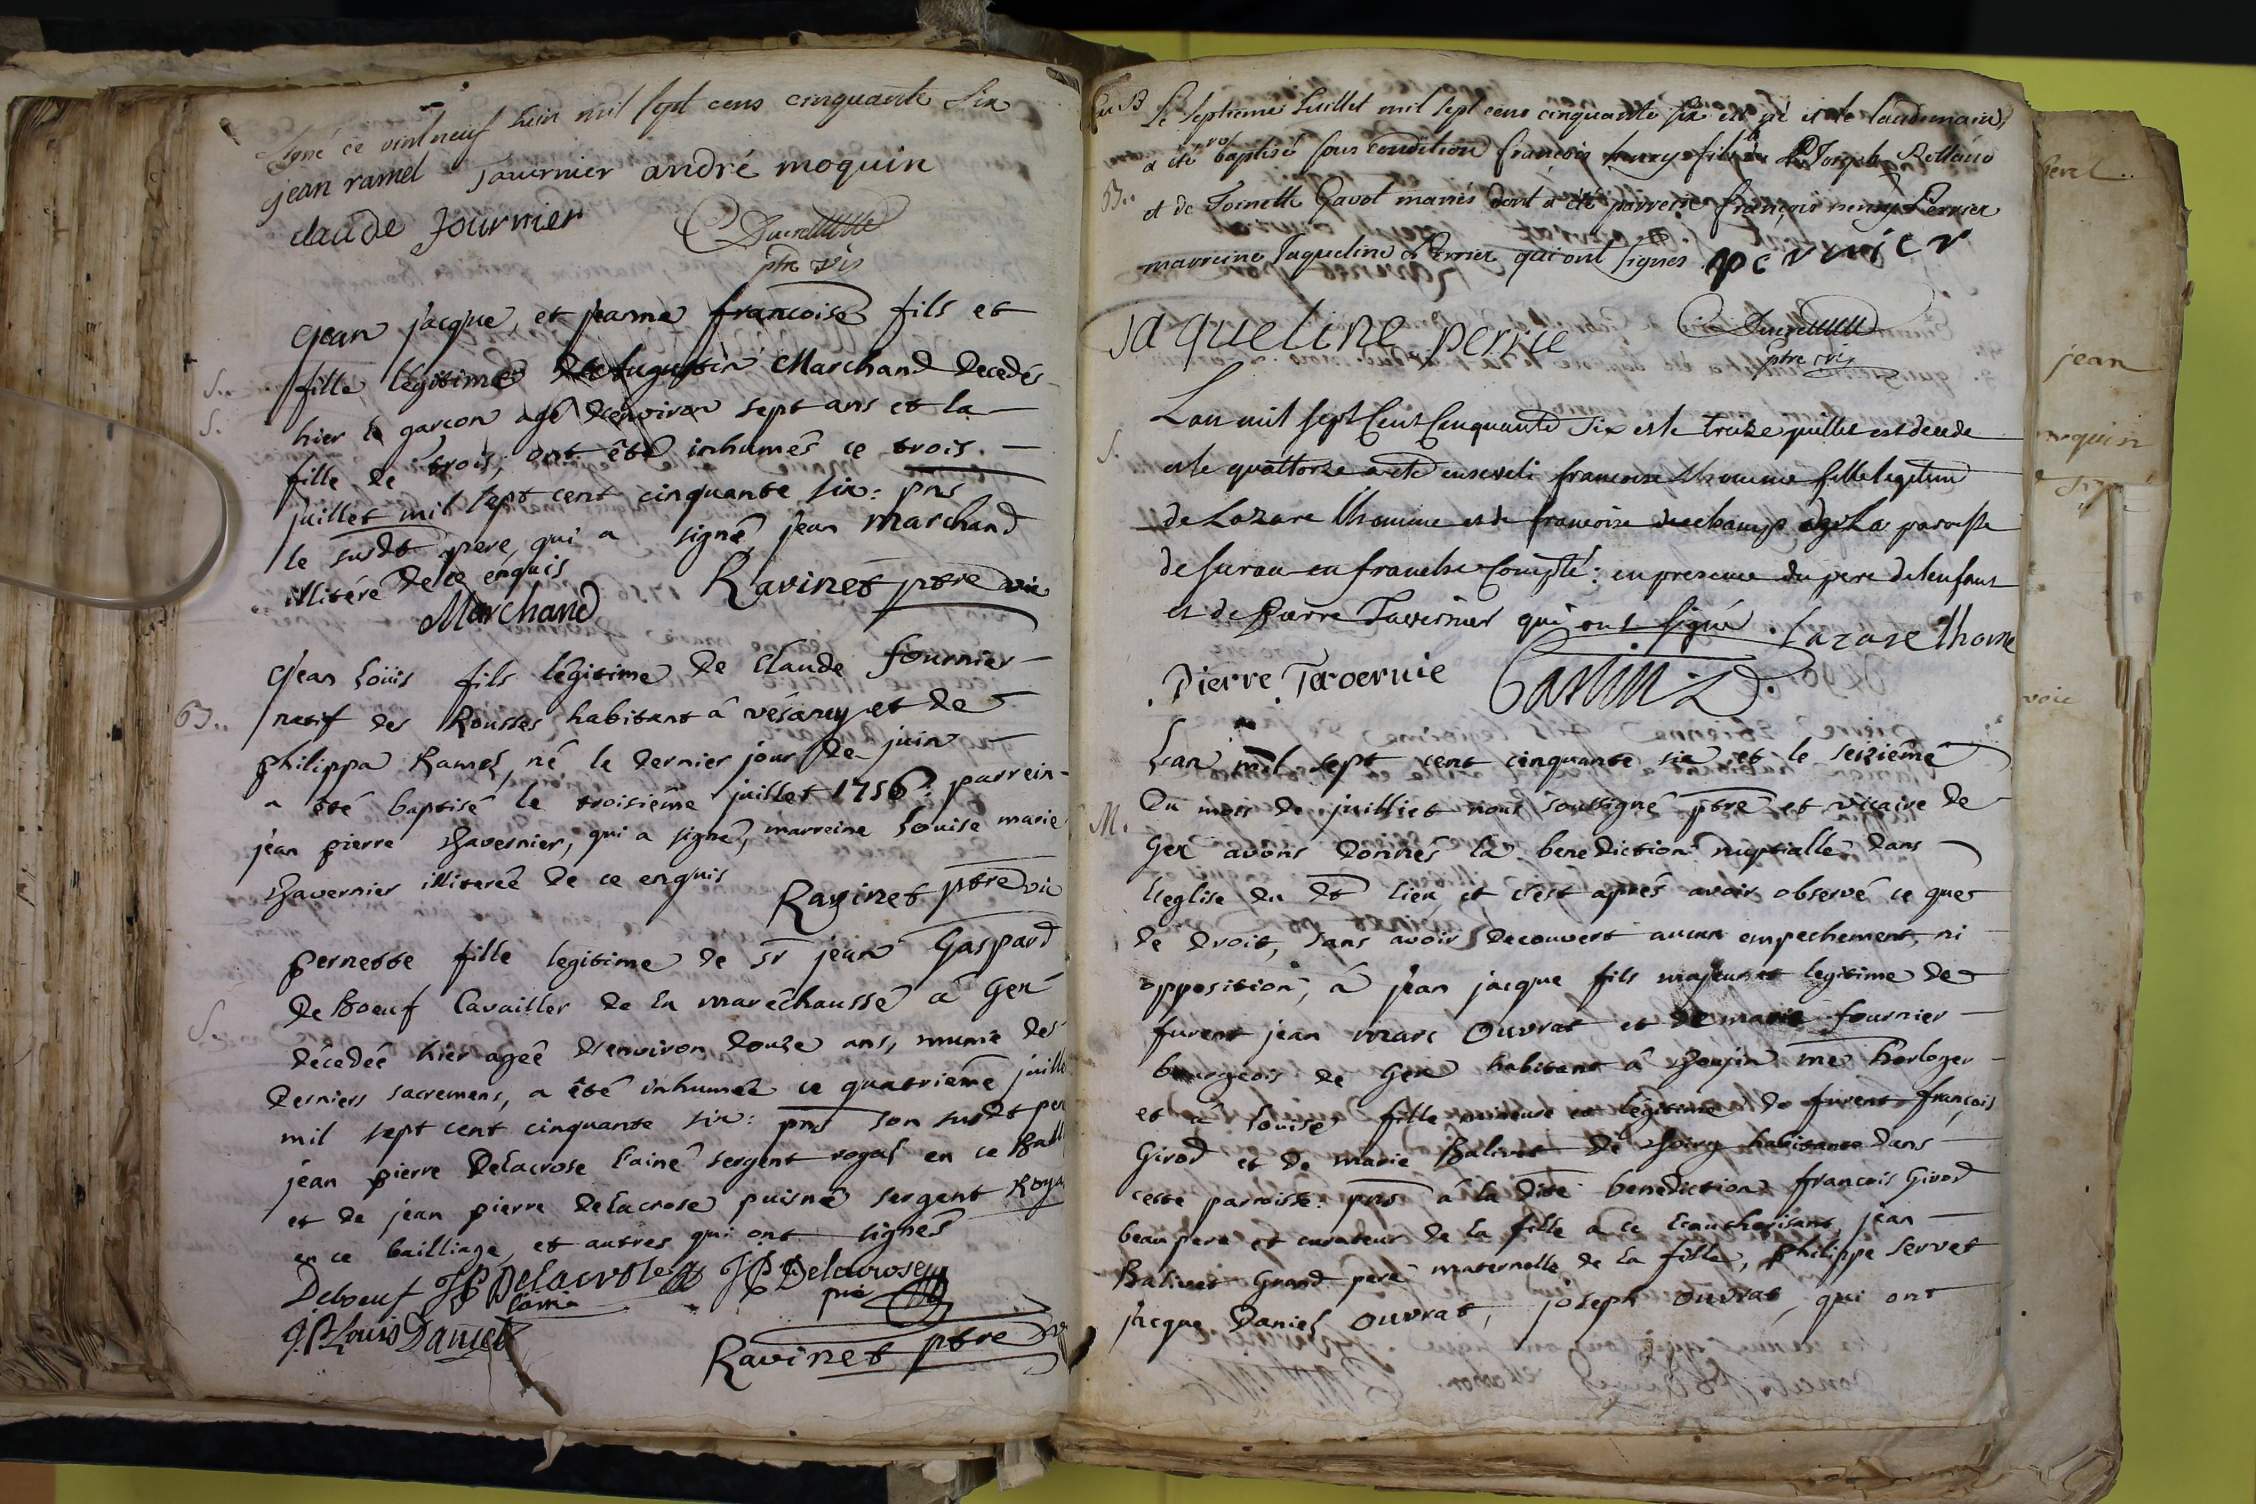 signé ce vint neuf Juin mil sept cens cinquante six
jean ramel Tavernier andré moquin
claude fournier
ptre vic
Jean jacque, et jeanne francoise fils et
S. fille légitimes de Augustin Marchand décédés
S. hier le garcon agé d'environ sept ans et la
fille de trois, ont été inhumés ce trois
juillet mil sept cent cinquante six: pns
le susdt pere, qui a signé jean marchand
illiteré de ce enquis Ravinet ptre vic
Marchand
Jean Loüis fils légitime de Claude fournier
B. natif des Rousses habitant â vésancy et de
philippa Ramel, né le dernier jour de juin
a été baptisé le troisiéme juillet 1756: parrein
jean pierre Thavernier, qui a signé, marreine Louise marie
Thavernier illitereé de ce enquis Ravinet ptre vic
pernette fille legitime de Sr jean Gaspard
DeBoeuf Cavailler de la maréchaussé â Gex
S. décédeé hier ageé d'environ douze ans, munie des
derniers sacremens, a été inhumeé ce quatriéme juillet
mil sept cent cinquante six: pns son susdt pere
jean pierre Delacrose l'ainé sergent royal en ce
et de jean pierre Delacrose puisné sergent Royal
en ce bailliage, et autres qui ont signés
Deboeuf JP Delacrose JP Delacrose
l'ainé pné
Louis Daniel
Ravinet ptre
B Le septieme Juillet mil sept cens cinquante six est né et le landemain
a été baptisé sous condition françois henry fils de Joseph
B. et de Gavot mariés dont a été parrein françois henry Perrier
marreine Jaqueline Perrier qui ont signés perrier
jaqueline perrie
ptre vic
Lan mil sept Cent Cinquante Six et le treize juillet est decede
S. et le quattorze a eté enseveli francoise Thomme fille legitime
de Lazare Thomme et de francoise deschamp de la paroisse
de en franche Compté: en presence du pere de lenfant
et de Pierre Tavernier qui ont signé. Lazare thome
Pierre Tavernie
Lan mil sept cent cinquante six et le seiziéme
M. Du mois de juilliet nous soussigné ptre et vicaire de
Gex avons donnés la benediction nuptialle dans
l'eglise du dt lieu, et c'est aprés avoir observé ce que
de droit, sans avoir decouvert aucun empechement, ni
opposition, â jean jacque fils majeur et legitime de
furent jean marc Ouvrat et de marie fournier
bourgeois de Gex habitant â me horloger
et â Louise fille mineure et légitime de furent françois
Girod et de marie Balivet de habitante dans
cette paroisse: pns â la dite benediction francois Girod
beaupere et curateur de la fille a ce l'autherisant, jean
Balivet Grand pere maternelle de la fille, philippe Servet
jacque Daniel Ouvrat, joseph Ouvrat, qui ont
jean
moquin